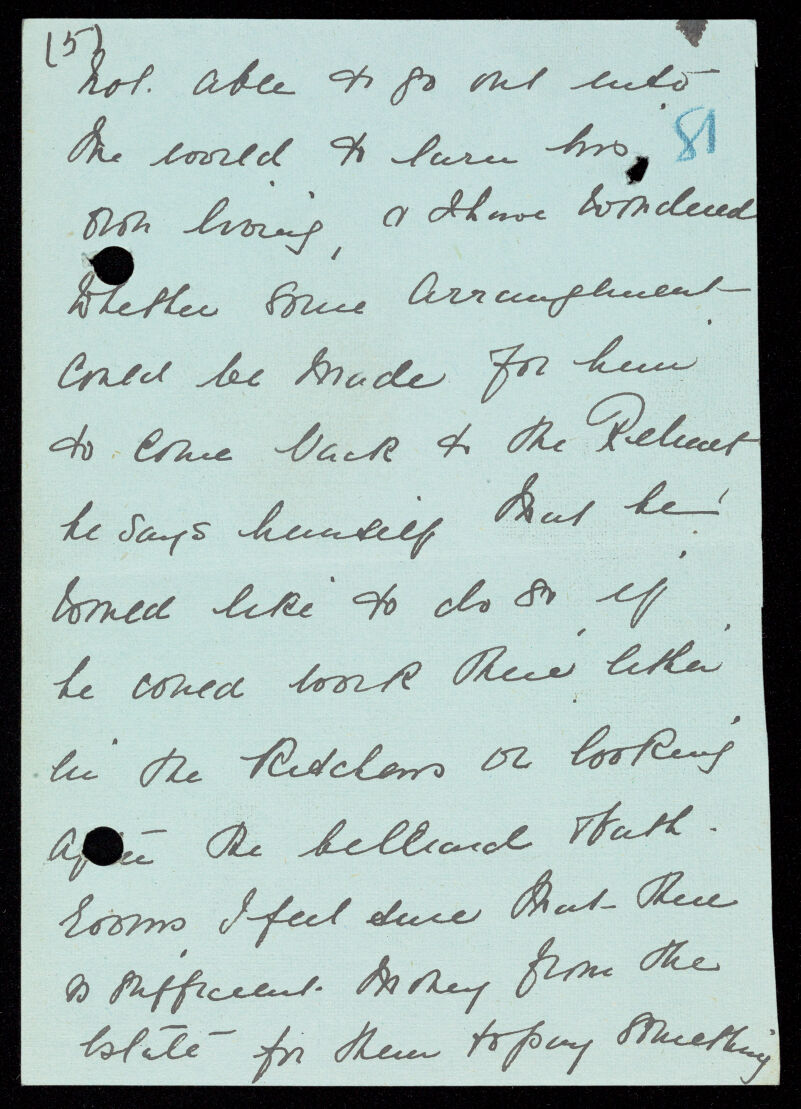 (5)
not. able to go out into
81
the world to earn his
own living, & I have wondered
whether some arrangement
could be made for him
to come back to the Retreat
he says himself that he
would like to do so, if
he could work there either
in the Kitchens or looking
after the billiard & bath.
rooms, I feel sure that there
is sufficient. money from the
Estate for them to pay something